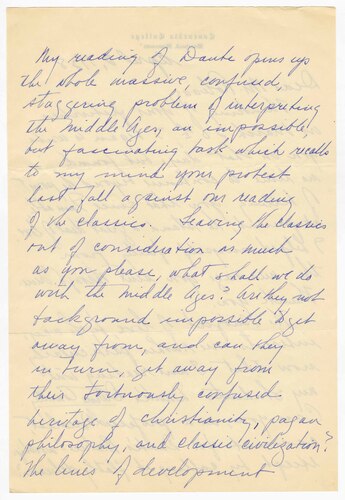 My reading of Dante opens up
the whole massive, confused,
staggering problem of interpreting
the Middle Ages, an impossible,
but fascinating task which recalls
to my mind your protest
last fall against our reading
of the classics. Leaving the classics
out of consideration as much
as you please, what shall we do
with the Middle Ages? Are they not
background impossible to get
away from, and can they
in turn, get away from
their tortuously confused
heritage of Christianity, pagan
philosophy, and classic civilization?
The lines of development